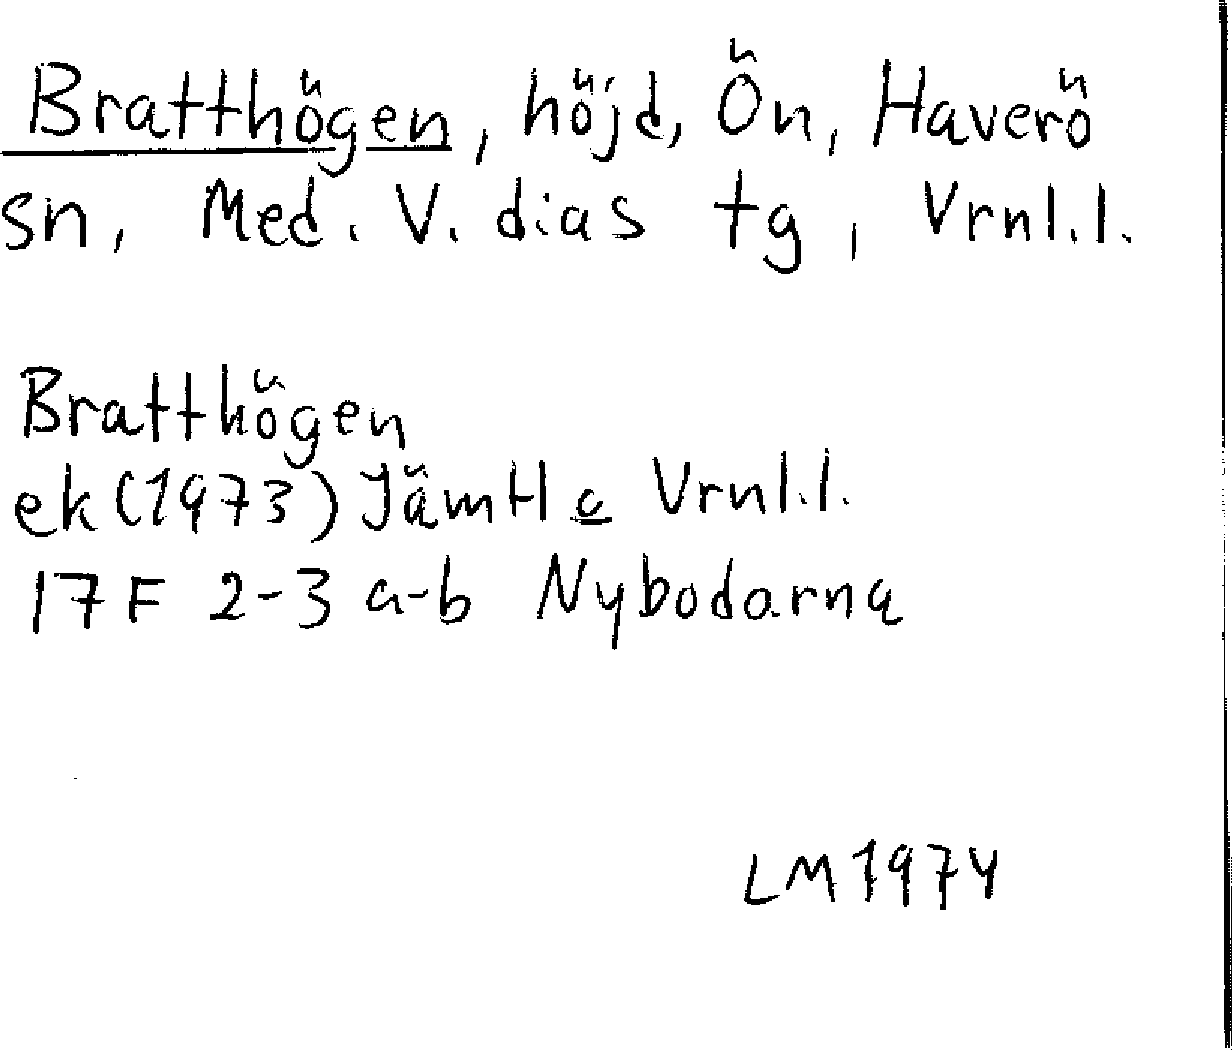 Bratthögen, höjd, Ön, Haverö
sn, Med. V. dias tg, Vrnl.l.
Bratthögen
ek(1973) Jämtl c Vrnl.l.
17F 2-3 a-b Nybodarna
LM 1974